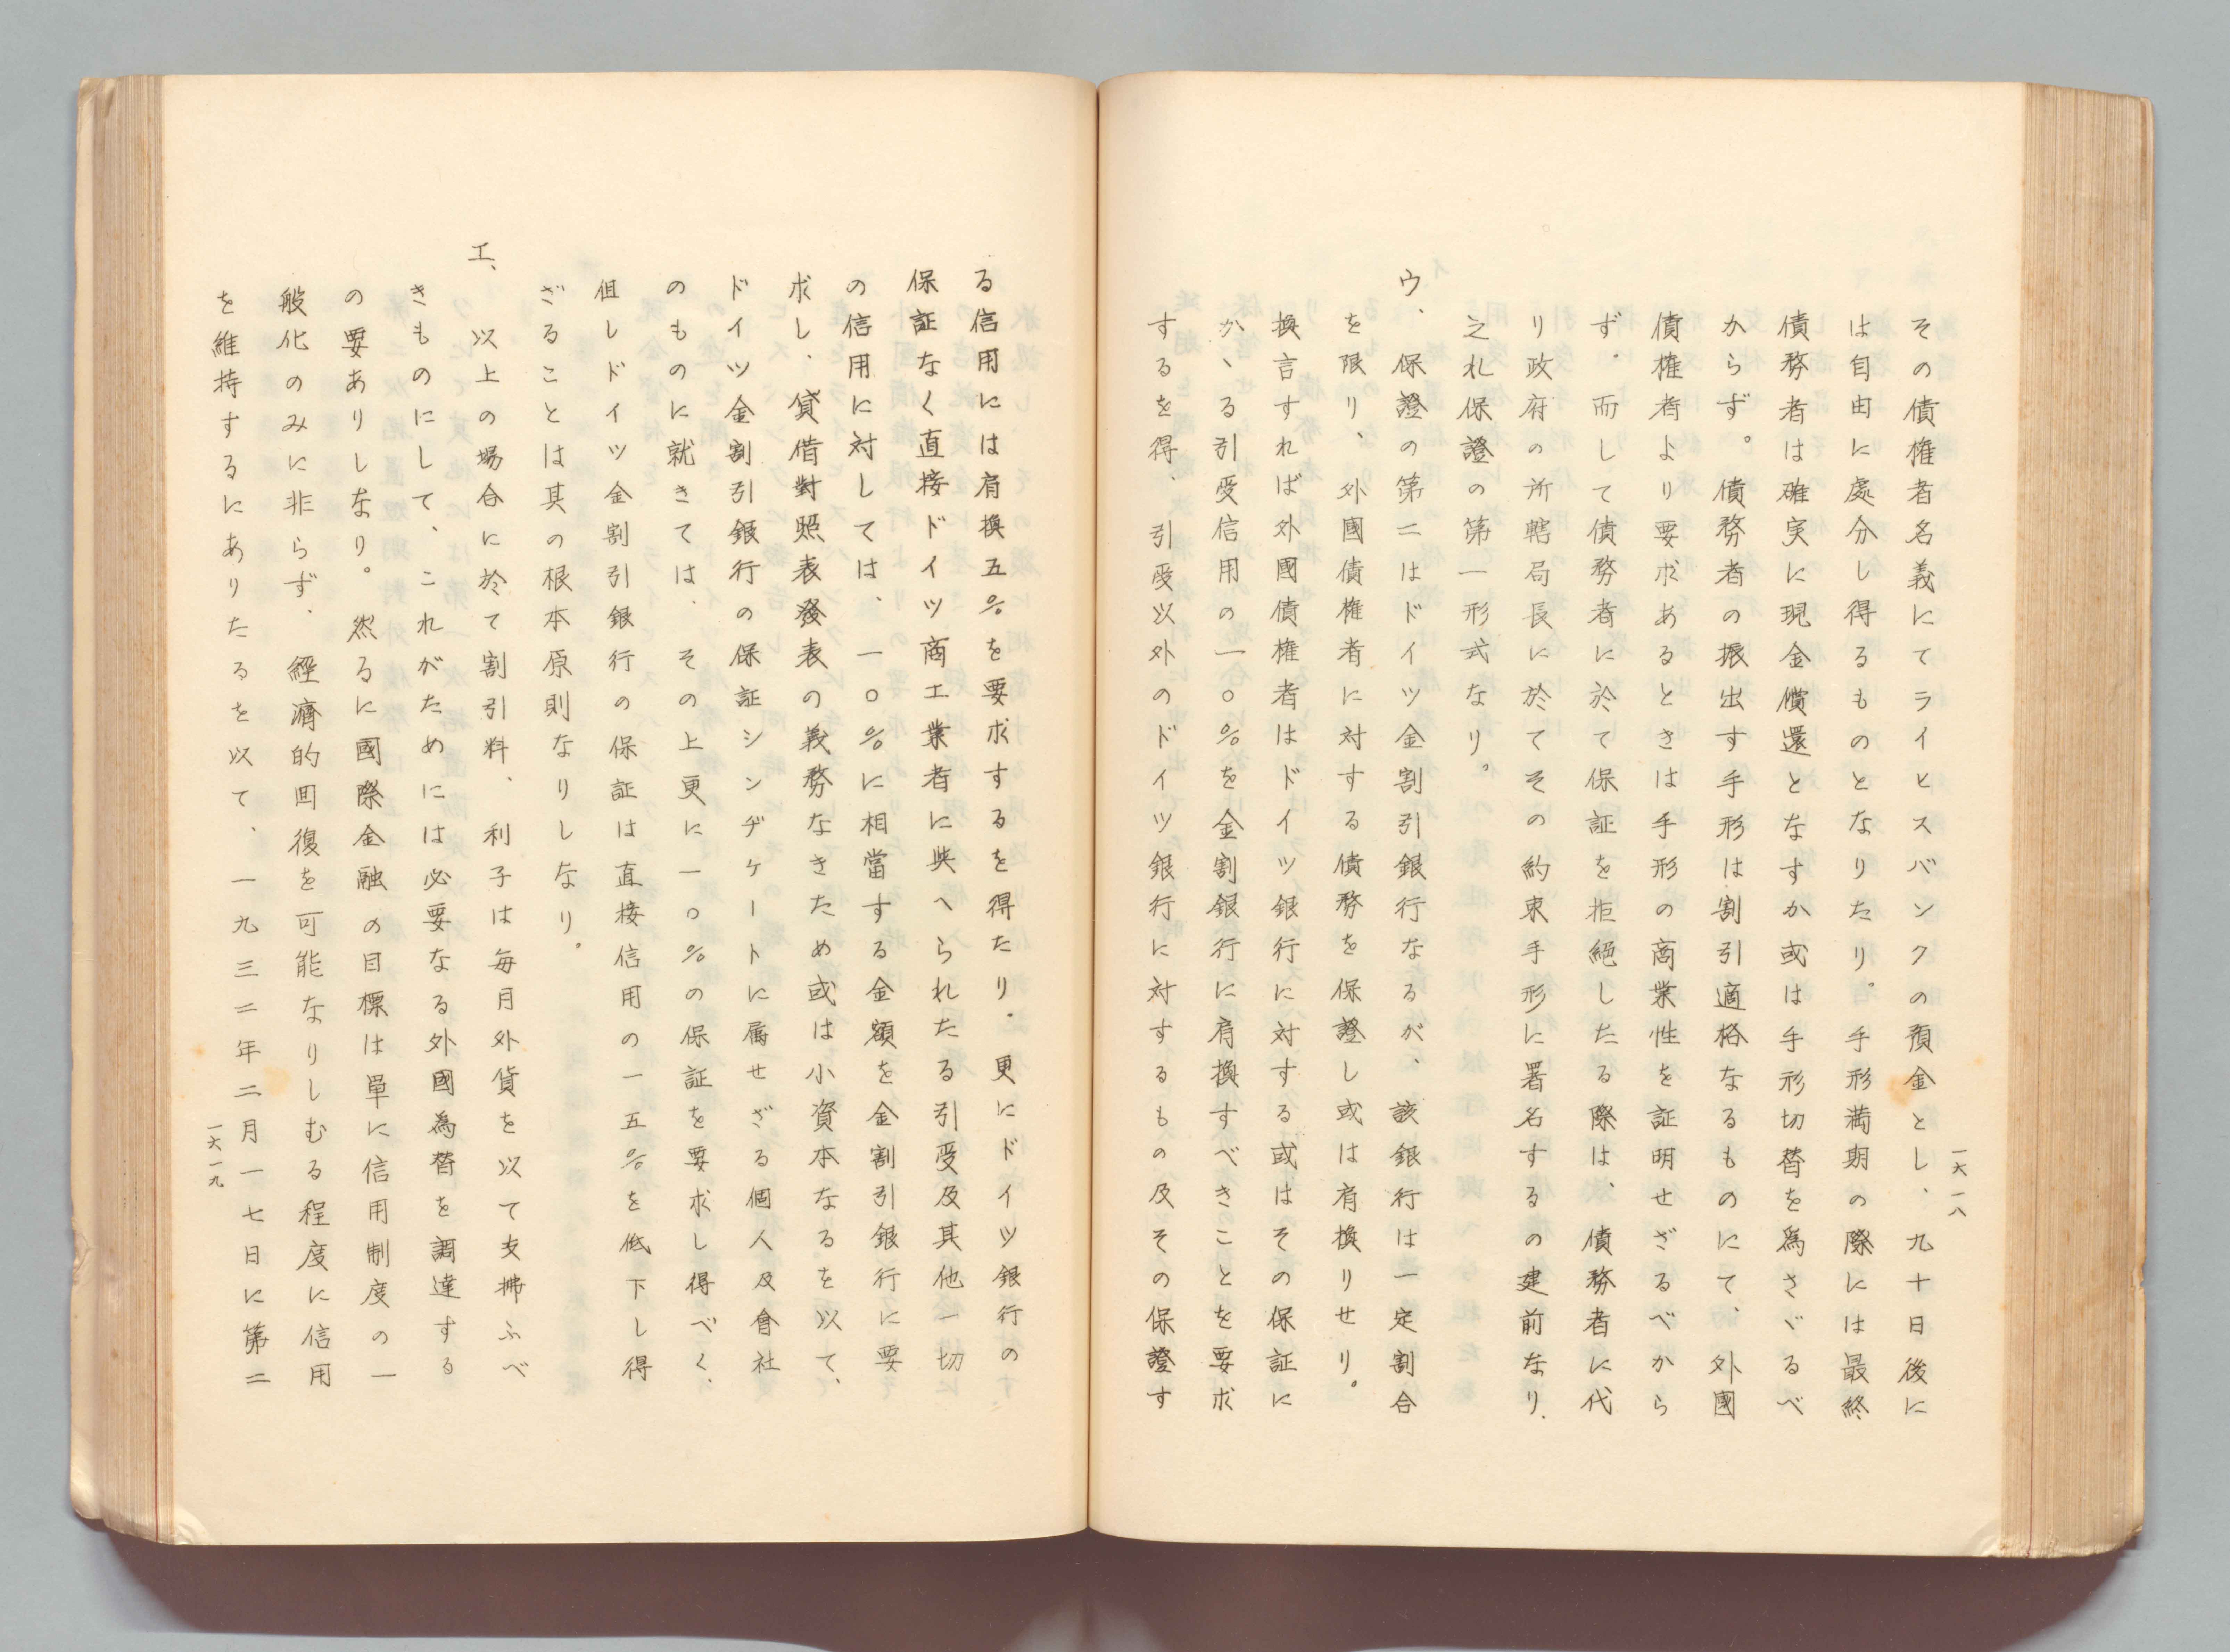 一六一八
その債権者名義にてライヒスバンクの預金とし、九十日後に
は自由に處分し得るものとなりたり。手形満期の際には最終
債務者は確実に現金償還となすか或は手形切替を為さゞるべ
からず。債務者の振出す手形は割引適格なるものにて、外國
債権者より要求あるときは手形の商業性を証明せざるべから
ず。而して債務者に於て保証を拒絕したる際は、債務者に代
り政府の所轄局長に於てその約束手形に署名するの建前なり、
之れ保證の第一形式なり。
ウ、保證の第二はドイツ金割引銀行なるが、該銀行は一定割合
を限り、外國債権者に対する債務を保證し或は肩換りせり。
換言すれば外國債権者はドイツ銀行に対する或はその保証に
かゝる引受信用の一〇%を金割銀行に肩換すべきことを要求
するを得、引受以外のドイツ銀行に対するもの及その保證す
る信用には肩換五%を要求するを得たり。更にドイツ銀行の
保証なく直接ドイツ商工業者に與へられたる引受及其他一切
の信用に対しては、一〇%に相當する金額を金割引銀行に要
求し、貸借對照表發表の義務なきため或は小資本なるを以て、
ドイツ金割引銀行の保証シンヂケートに属せざる個人及會社
のものに就きては、その上更に一〇%の保証を要求し得べく、
但しドイツ金割引銀行の保証は直接信用の一五%を低下し得
ざることは其の根本原則なりしなり。
エ、以上の場合に於て割引料、利子は毎月外貨を以て支拂ふべ
きものにして、これがためには必要なる外國為替を調達する
の要ありしなり。然るに國際金融の目標は單に信用制度の一
般化のみに非らず、經濟的回復を可能なりしむる程度に信用
を維持するにありたるを以て、一九三二年二月一七日に第二
一六一九